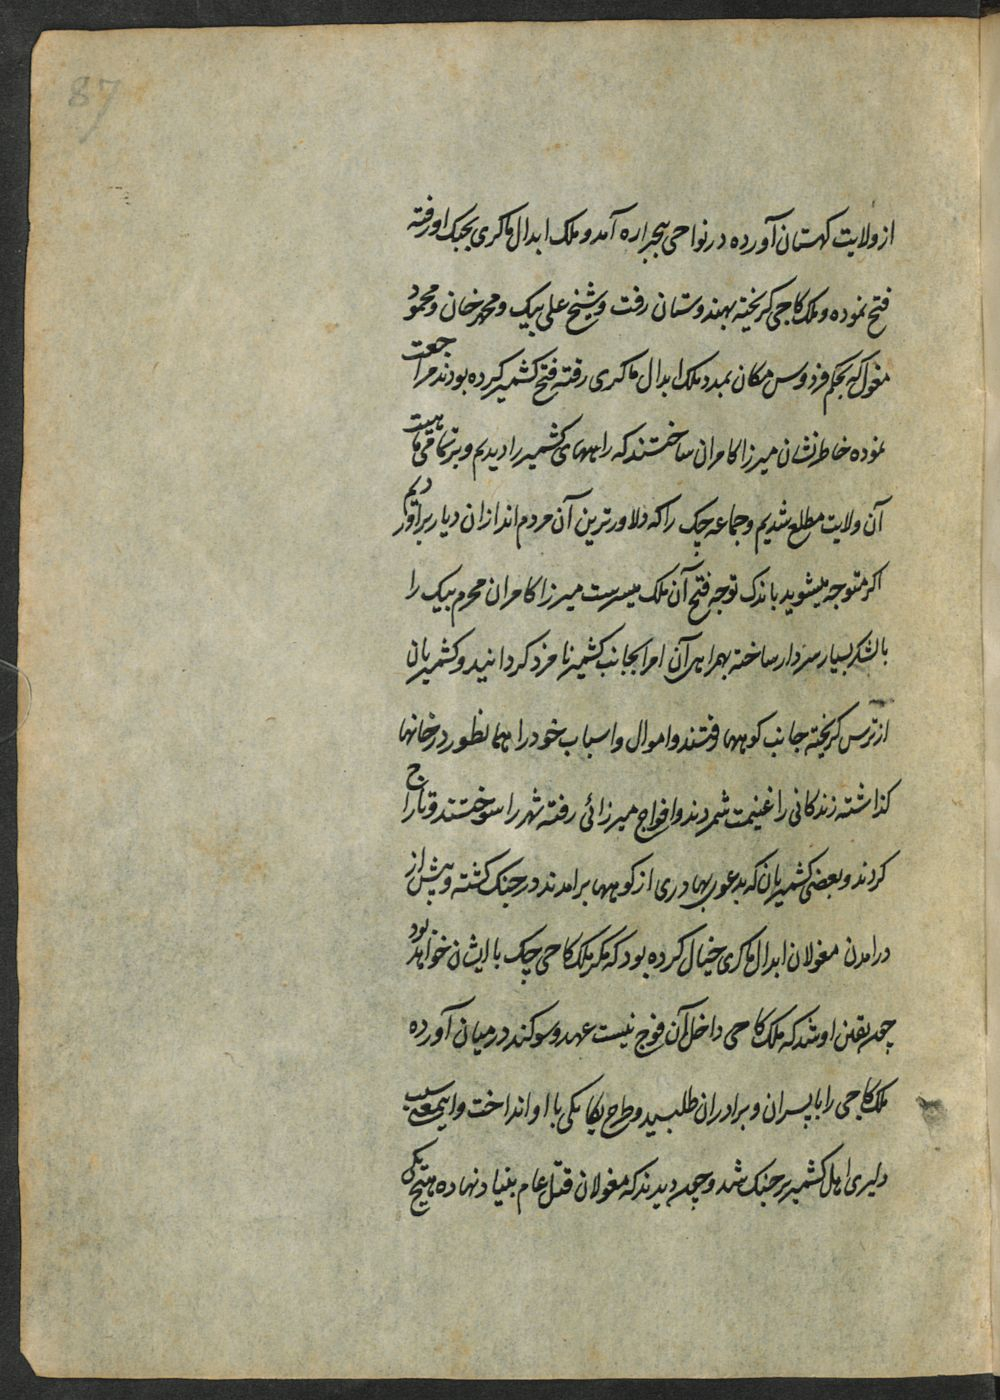 87
از ولایت کهستان آورده در نواحی بجبراره آمد و ملک ابدال ماکری بجنک او رفته
فتح نموده و ملک کاجی کریخته بهندوستان رفت و شیخ علی بیک و محمد خان و محمود
مغول که بحکم فردوس مکان بمدد ملک ابدال ماکری رفته فتح کشمیر کرده بودند مراجعت
نموده خاطر نشان میرزا کامران ساختند که راههای کشمیر را دیدیم و بر تمامی ماهیت
آن ولایت مطلع شدیم و جماعه چک را که دلاورترین آن مردم اند ازان دیار برآوردیم
اکر متوجه میشوید باندک توجه فتح آن ملک میسرست میرزا کامران محرم بیک را
بالشکر بسیار سردار ساخته بهمراهی آن امرا بجانب کشمیر نامزد کردانید و کشمیریان
از ترس کریخته جانب کوهها رفتند و اموال و اسباب خود را همانطور در خانها
کذاشته زندکانی را غنیمت شمردند و افواج میرزائی رفته شهر را سوختند و تاراج
کردند و بعضی کشمیریان که بدعوی بهادری از کوهها برامدند در جنک کشته و پیش از
درامدن مغولان ابدال ماکری خیال کرده بود که مکر ملک کاجی چک با ایشان خواهد بود
چون یقین او شد که ملک کاجی داخل آن فوج نیست عهد و سوکند در میان آورده
ملک کاجی را با پسران و برادران طلبید و طرح یکانکی با او انداخت و اینمعنی سبب
دلیری اهل کشمیر بر جنک شد و چون دیدند که مغولان قتل عام بنیاد نهاده